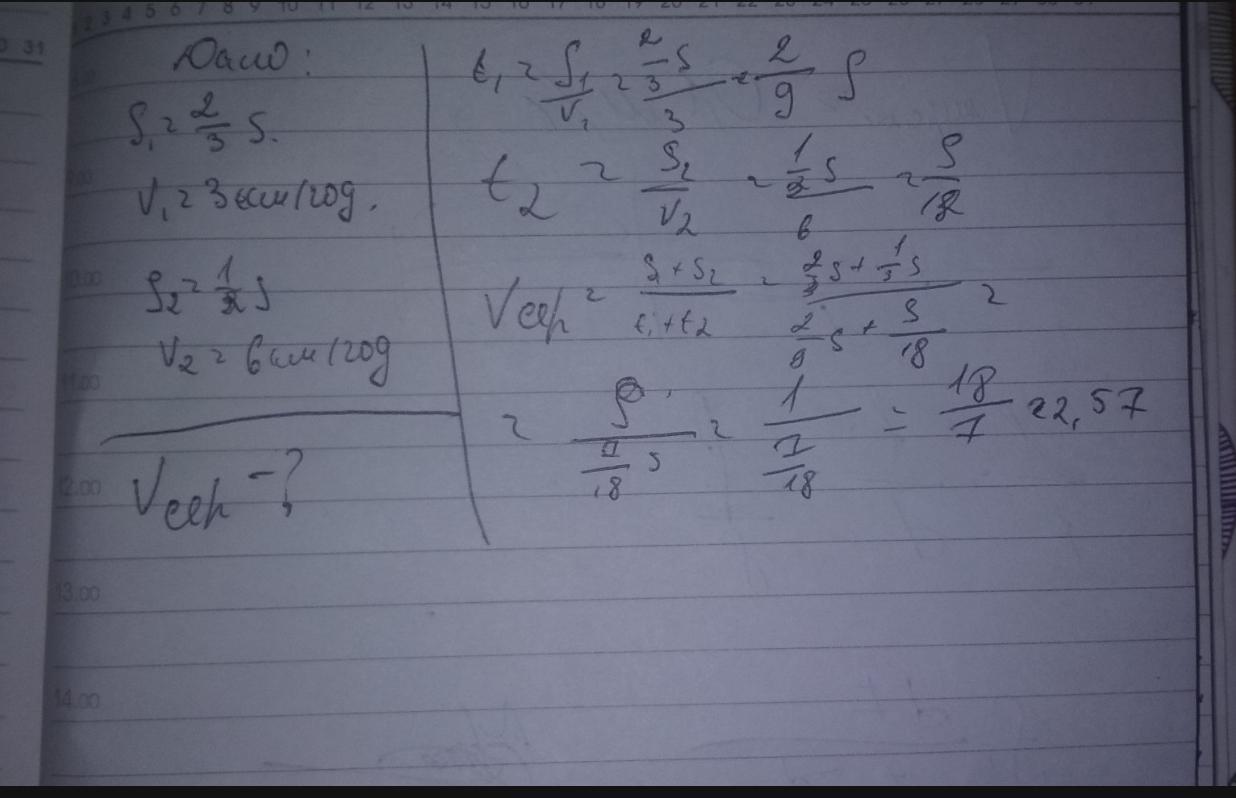 2 3 4 5 6 7 8 9 10 11 12 13 14 15 16 17 18 19 20 21 22 23 24 25
31
Дано:
S₁ = 2/3 S.
V₁ = 3 км/год.
S₂ = 1/3 S
V₂ = 6 км/год
Vсер - ?
t₁ = S₁/V₁ = (2/3 S)/3 = 2/9 S
t₂ = S₂/V₂ = (1/3 S)/6 = S/18
Vсер = (S₁ + S₂)/(t₁ + t₂) = (2/3 S + 1/3 S)/(2/9 S + S/18) =
= S/(7/18 S) = 1/(7/18) = 18/7 = 2,57
11.00
12.00
13.00
14.00